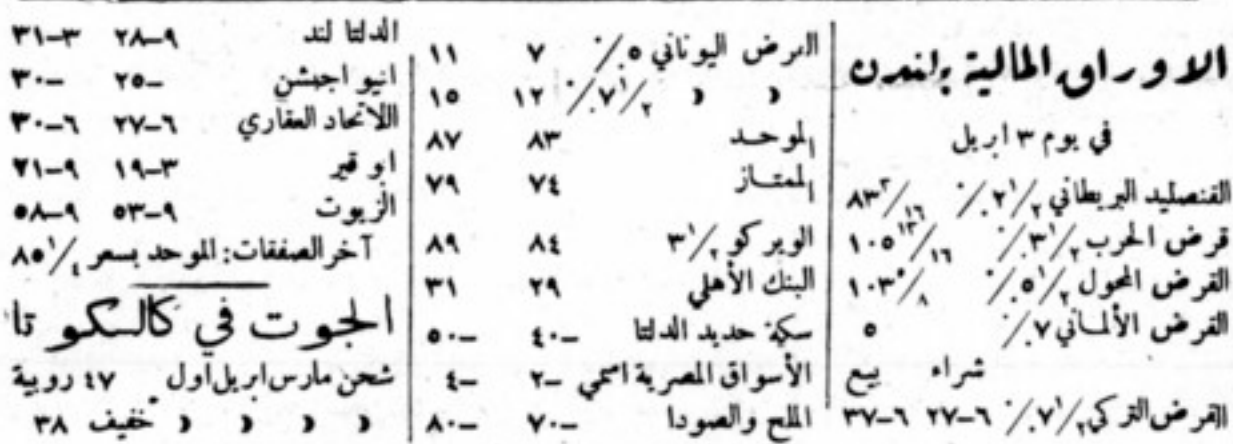 الاوراق المالية بلندن
في يوم ٣ ابريل
القنصليد البريطاني ٢ ١/٢ ٪
قرض الحرب ٣ ١/٢ ٪ ١٠٥ ١٣/١٦
القرض المحول ٥ ١/٢ ٪ ١٠٣ ٥/٨
القرض الألماني ٧ ٪ ٥
شراء بيع
القرض التركي ٧ ١/٢ ٪ ٦–٢٧ ٦–٣٧
القرض اليوناني ٥ ٪ ٧ ١١
« « ٧ ١/٢ ٪ ١٢ ١٥
الموحد ٨٣ ٨٧
الممتاز ٧٤ ٧٩
الويركو ٣ ١/٢ ٨٤ ٨٩
البنك الأهلي ٢٩ ٣١
سكة حديد الدلتا –٤٠ –٥٠
الأسواق المصرية اسمي –٢ –٤
الملح والصودا –٧٠ –٨٠
الدلتا لند ٩–٢٨ ٣–٣١
انيو اجبشن –٢٥ –٣٠
اللاتحاد العقاري ٦–٢٧ ٦–٣٠
ابو قير ٣–١٩ ٩–٢١
الزيوت ٩–٥٣ ٩–٥٨
آخر الصفقات: الموحد بسعر ٨٥ ١/٤
الجوت في كالسكوتا
شحن مارس ابريل اول ٤٧ روبية
« « « « خفيف ٣٨